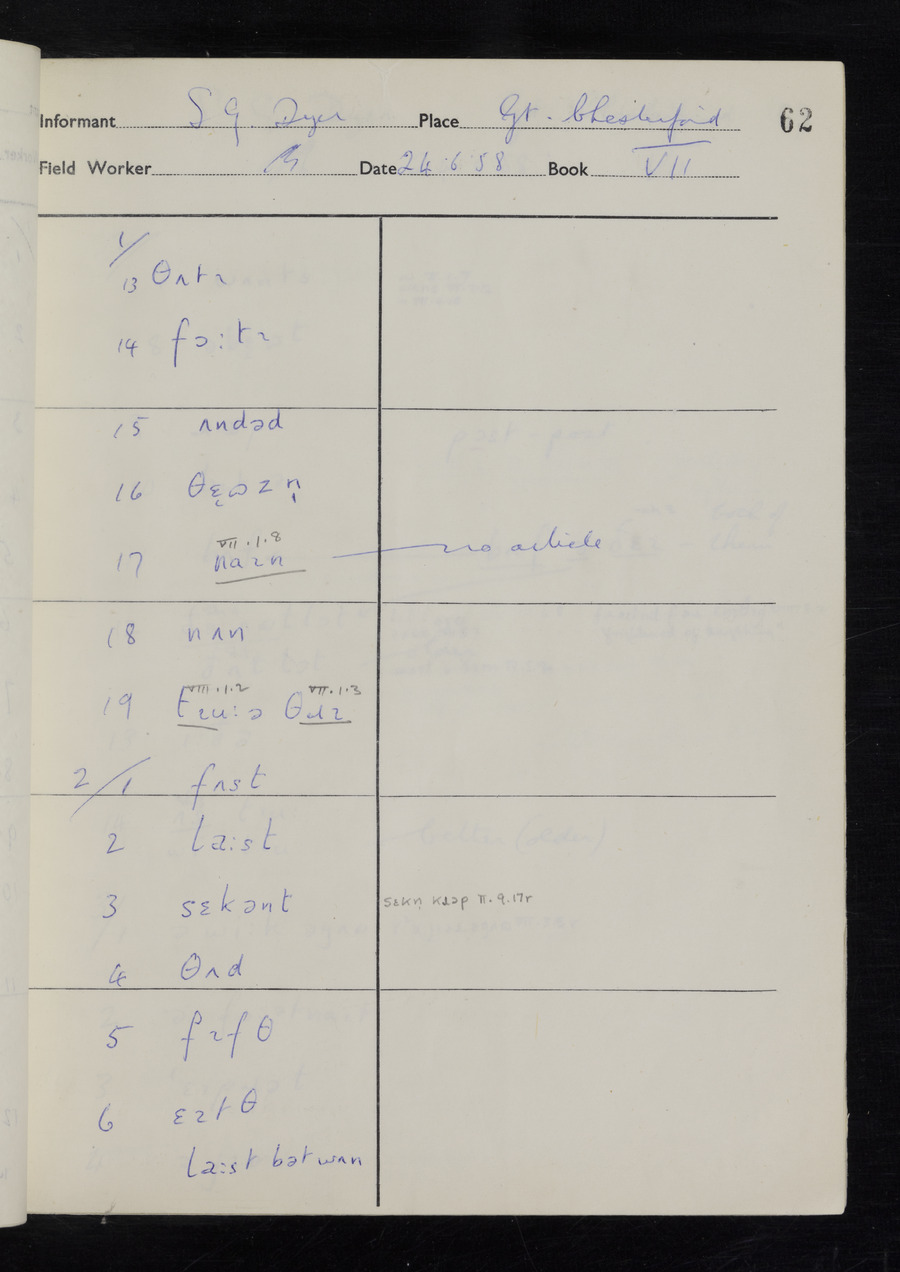 Informant S G. Dyer Place Gt. Chesterford 62
Field Worker Date 24.6.58 Book VII
1/
13 θʌtɪ
14 fɔ:tɪ
15 ʌndəd
16
17 VII.1.8
naɪn no article
18 nʌn
19 VIII.1.2 VII.1.3
2/1 fʌst
2 la:st
3 sɛkənt sɛkṇ II.9.17r
4 θʌd
5 fɪfθ
6 ɛɪtθ
la:st bət wʌn